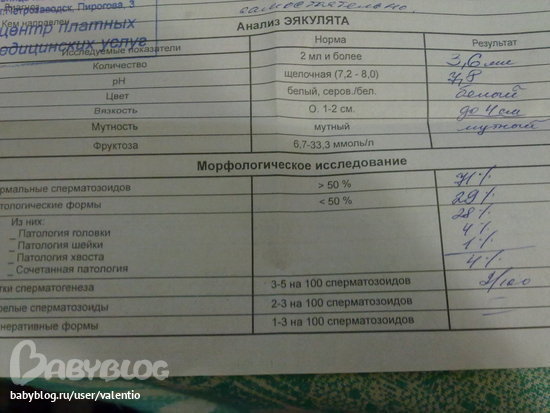 Диагноз
г.Петрозаводск, Пирогова, 3
Кем направлен самостоятельно
центр платных
медицинских услуг
Анализ ЭЯКУЛЯТА
Исследуемые показатели Норма Результат
Количество 2 мл и более 3,6 мл
pH щелочная (7,2 - 8,0) 7,8
Цвет белый, серов./бел. белый
Вязкость О. 1-2 см. до 4 см
Мутность мутный мутный
Фруктоза 6,7-33,3 ммоль/л
Морфологическое исследование
рмальные сперматозоидов > 50 % 71%
тологические формы < 50 % 29%
Из них: 28%
_ Патология головки 4%
_ Патология шейки 1%
_ Патология хвоста
_ Сочетанная патология 4%
тки сперматогенеза 3-5 на 100 сперматозоидов 2/100
релые сперматозоиды 2-3 на 100 сперматозоидов –
неративные формы 1-3 на 100 сперматозоидов –
BABYBLOG
babyblog.ru/user/valentio